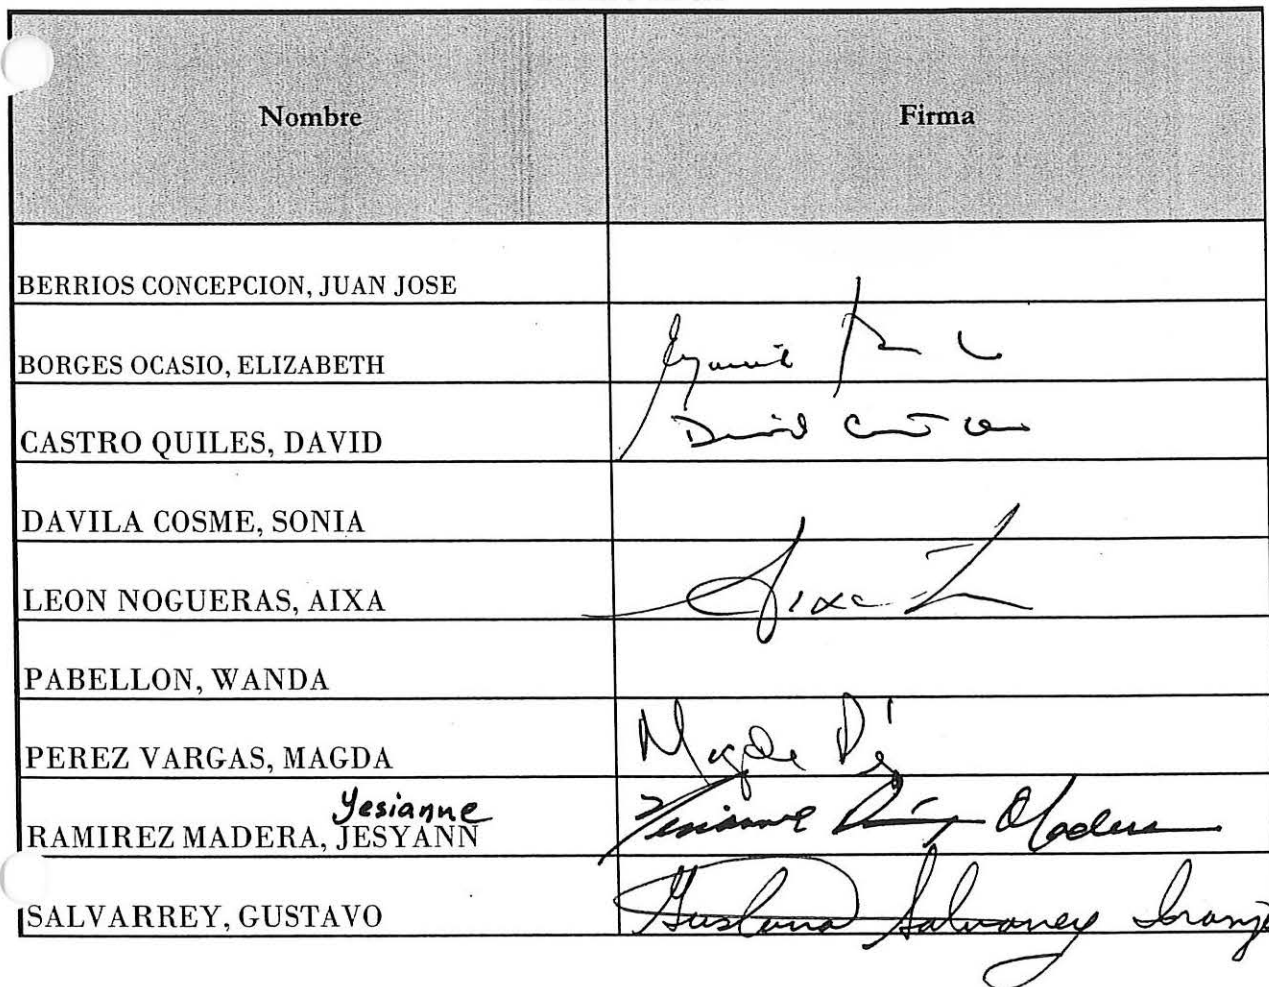 Nombre Firma
BERRIOS CONCEPCION, JUAN JOSE
BORGES OCASIO, ELIZABETH
CASTRO QUILES, DAVID David
DAVILA COSME, SONIA
LEON NOGUERAS, AIXA Aixa
PABELLON, WANDA
PEREZ VARGAS, MAGDA Magda
Yesianne
RAMIREZ MADERA, JESYANN Yesianne Madera
SALVARREY, GUSTAVO Gustavo Salvarrey